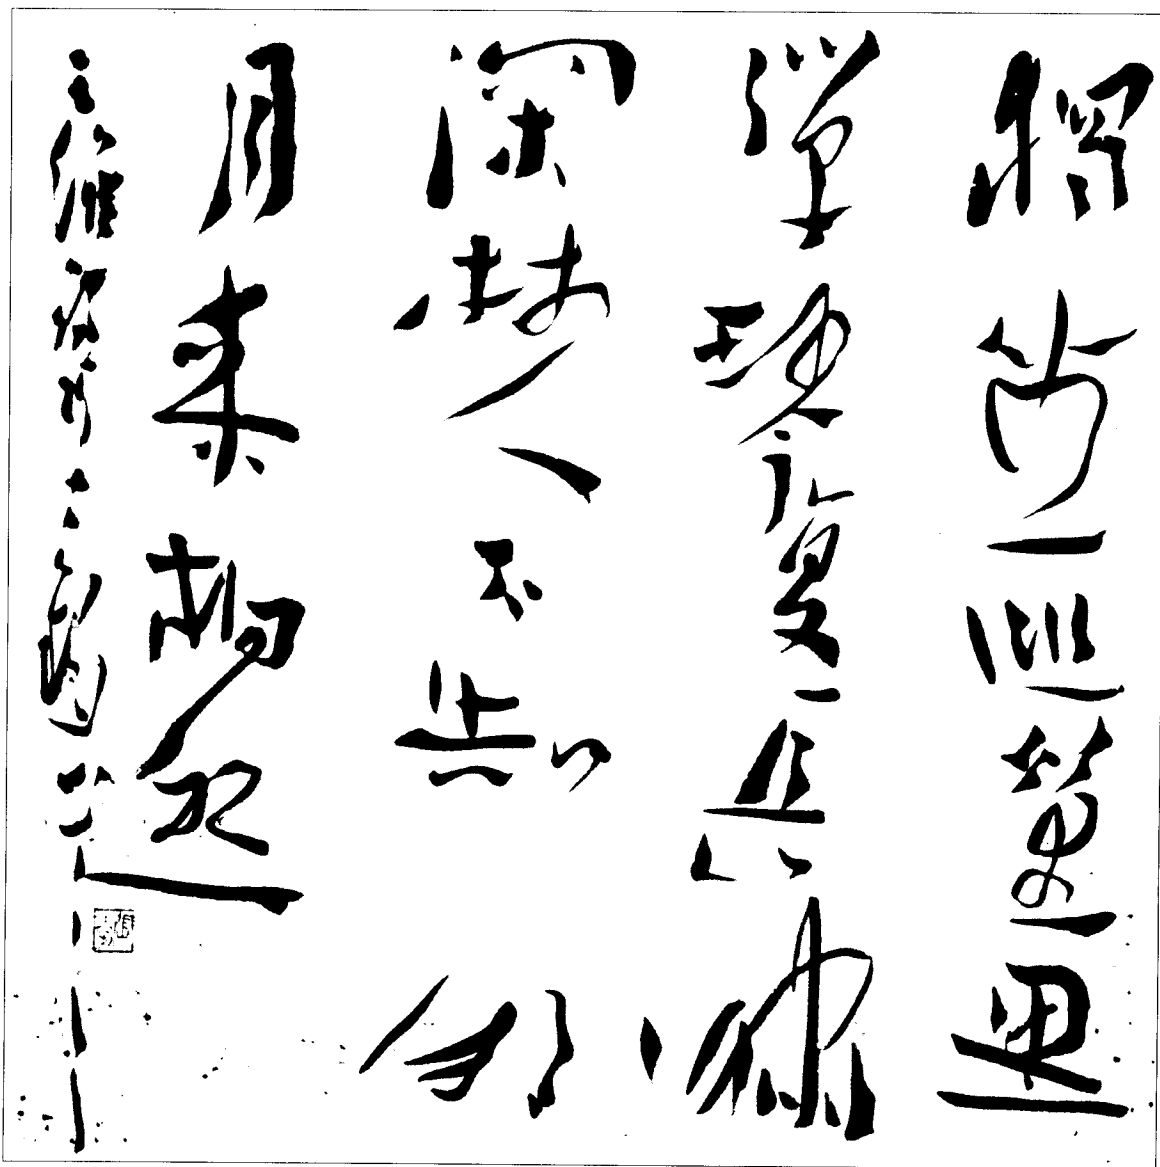 獨坐幽篁里
彈琴復長嘯
深林人不知明
月來相照
王維詩